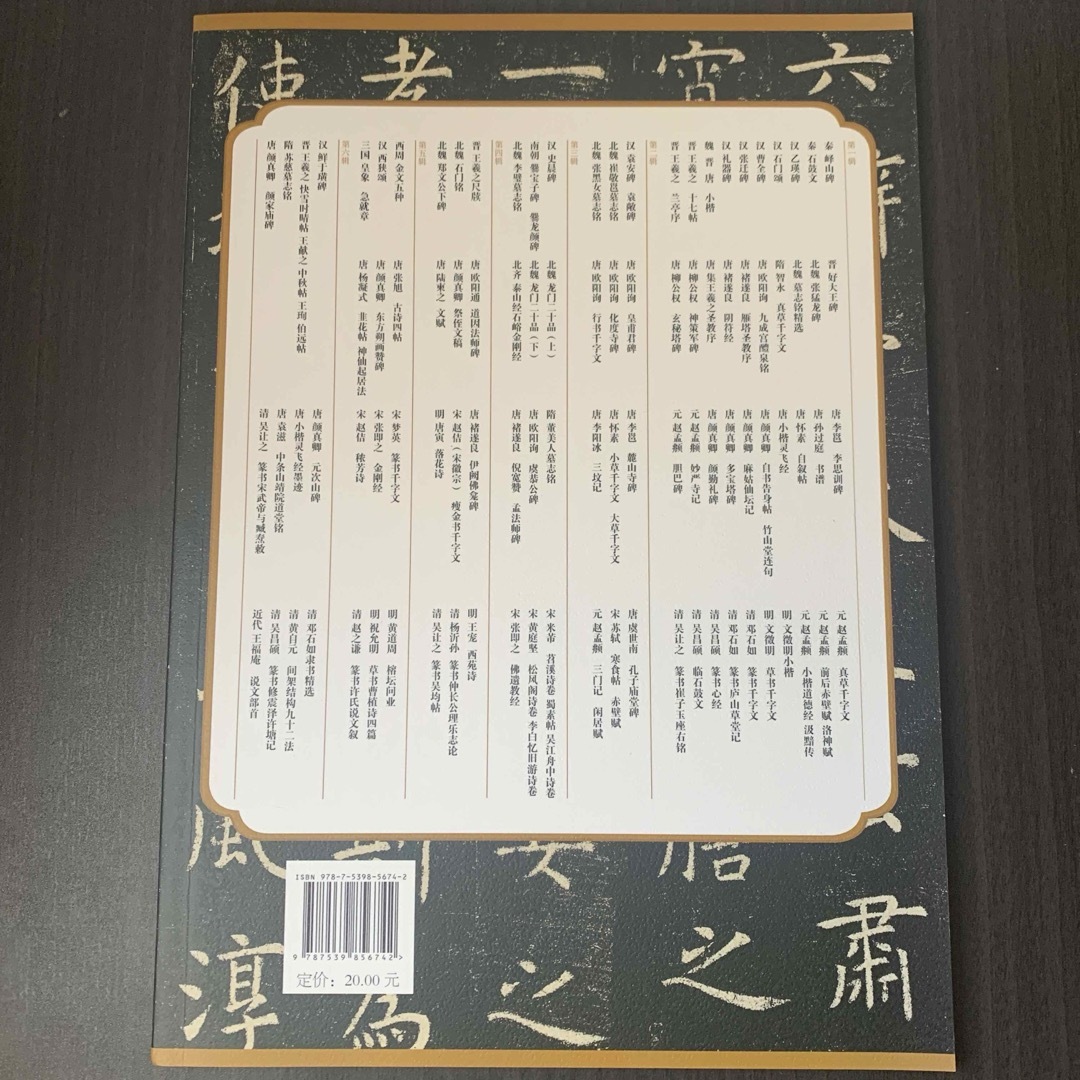 第一辑
秦 峄山碑
秦 石鼓文
汉 乙瑛碑
汉 石门颂
汉 曹全碑
汉 张迁碑
汉 礼器碑
魏 晋 唐 小楷
晋 王羲之 十七帖
晋 王羲之 兰亭序
晋 好大王碑
北魏 张猛龙碑
北魏 墓志铭精选
隋 智永 真草千字文
唐 欧阳询 九成宫醴泉铭
唐 褚遂良 雁塔圣教序
唐 褚遂良 阴符经
唐 集王羲之圣教序
唐 柳公权 神策军碑
唐 柳公权 玄秘塔碑
唐 李邕 李思训碑
唐 孙过庭 书谱
唐 怀素 自叙帖
唐 小楷灵飞经
唐 颜真卿 自书告身帖 竹山堂连句
唐 颜真卿 麻姑仙坛记
唐 颜真卿 多宝塔碑
唐 颜真卿 颜勤礼碑
元 赵孟頫 妙严寺记
元 赵孟頫 胆巴碑
元 赵孟頫 真草千字文
元 赵孟頫 前后赤壁赋 洛神赋
元 赵孟頫 小楷道德经 汲黯传
明 文徵明小楷
明 文徵明 草书千字文
清 邓石如 篆书千字文
清 邓石如 篆书庐山草堂记
清 吴昌硕 篆书心经
清 吴昌硕 临石鼓文
清 吴让之 篆书崔子玉座右铭
第二辑
汉 袁安碑 袁敞碑
北魏 崔敬邕墓志铭
北魏 张黑女墓志铭
唐 欧阳询 皇甫君碑
唐 欧阳询 化度寺碑
唐 欧阳询 行书千字文
唐 李邕 麓山寺碑
唐 怀素 小草千字文 大草千字文
唐 李阳冰 三坟记
唐 虞世南 孔子庙堂碑
宋 苏轼 寒食帖 赤壁赋
元 赵孟頫 三门记 闲居赋
第三辑
汉 史晨碑
南朝 爨宝子碑 爨龙颜碑
北魏 李璧墓志铭
北魏 龙门二十品（上）
北魏 龙门二十品（下）
北齐 泰山经石峪金刚经
隋 董美人墓志铭
唐 欧阳询 虞恭公碑
唐 褚遂良 倪宽赞 孟法师碑
宋 米芾 苕溪诗卷 蜀素帖 吴江舟中诗卷
宋 黄庭坚 松风阁诗卷 李白忆旧游诗卷
宋 张即之 佛遗教经
第四辑
晋 王羲之尺牍
北魏 石门铭
北魏 郑文公下碑
唐 欧阳通 道因法师碑
唐 颜真卿 祭侄文稿
唐 陆柬之 文赋
唐 褚遂良 伊阙佛龛碑
宋 赵佶（宋徽宗） 瘦金书千字文
明 唐寅 落花诗
明 王宠 西苑诗
清 杨沂孙 篆书仲长公理乐志论
清 吴让之 篆书吴均帖
第五辑
西周 金文五种
汉 西狭颂
三国 皇象 急就章
唐 张旭 古诗四帖
唐 颜真卿 东方朔画赞碑
唐 杨凝式 韭花帖 神仙起居法
宋 梦英 篆书千字文
宋 张即之 金刚经
宋 赵佶 秾芳诗
明 黄道周 榕坛问业
明 祝允明 草书曹植诗四篇
清 赵之谦 篆书许氏说文叙
第六辑
汉 鲜于璜碑
晋 王羲之 快雪时晴帖 王献之 中秋帖 王珣 伯远帖
隋 苏慈墓志铭
唐 颜真卿 颜家庙碑
唐 颜真卿 元次山碑
唐 小楷灵飞经墨迹
唐 袁滋 中条山靖院道堂铭
清 吴让之 篆书宋武帝与臧焘敕
清 邓石如隶书精选
清 黄自元 间架结构九十二法
清 吴昌硕 篆书修震泽许塘记
近代 王福庵 说文部首
ISBN 978-7-5398-5674-2
9 787539 856742 >
定价：20.00 元
六
肃
一
之
之
淳